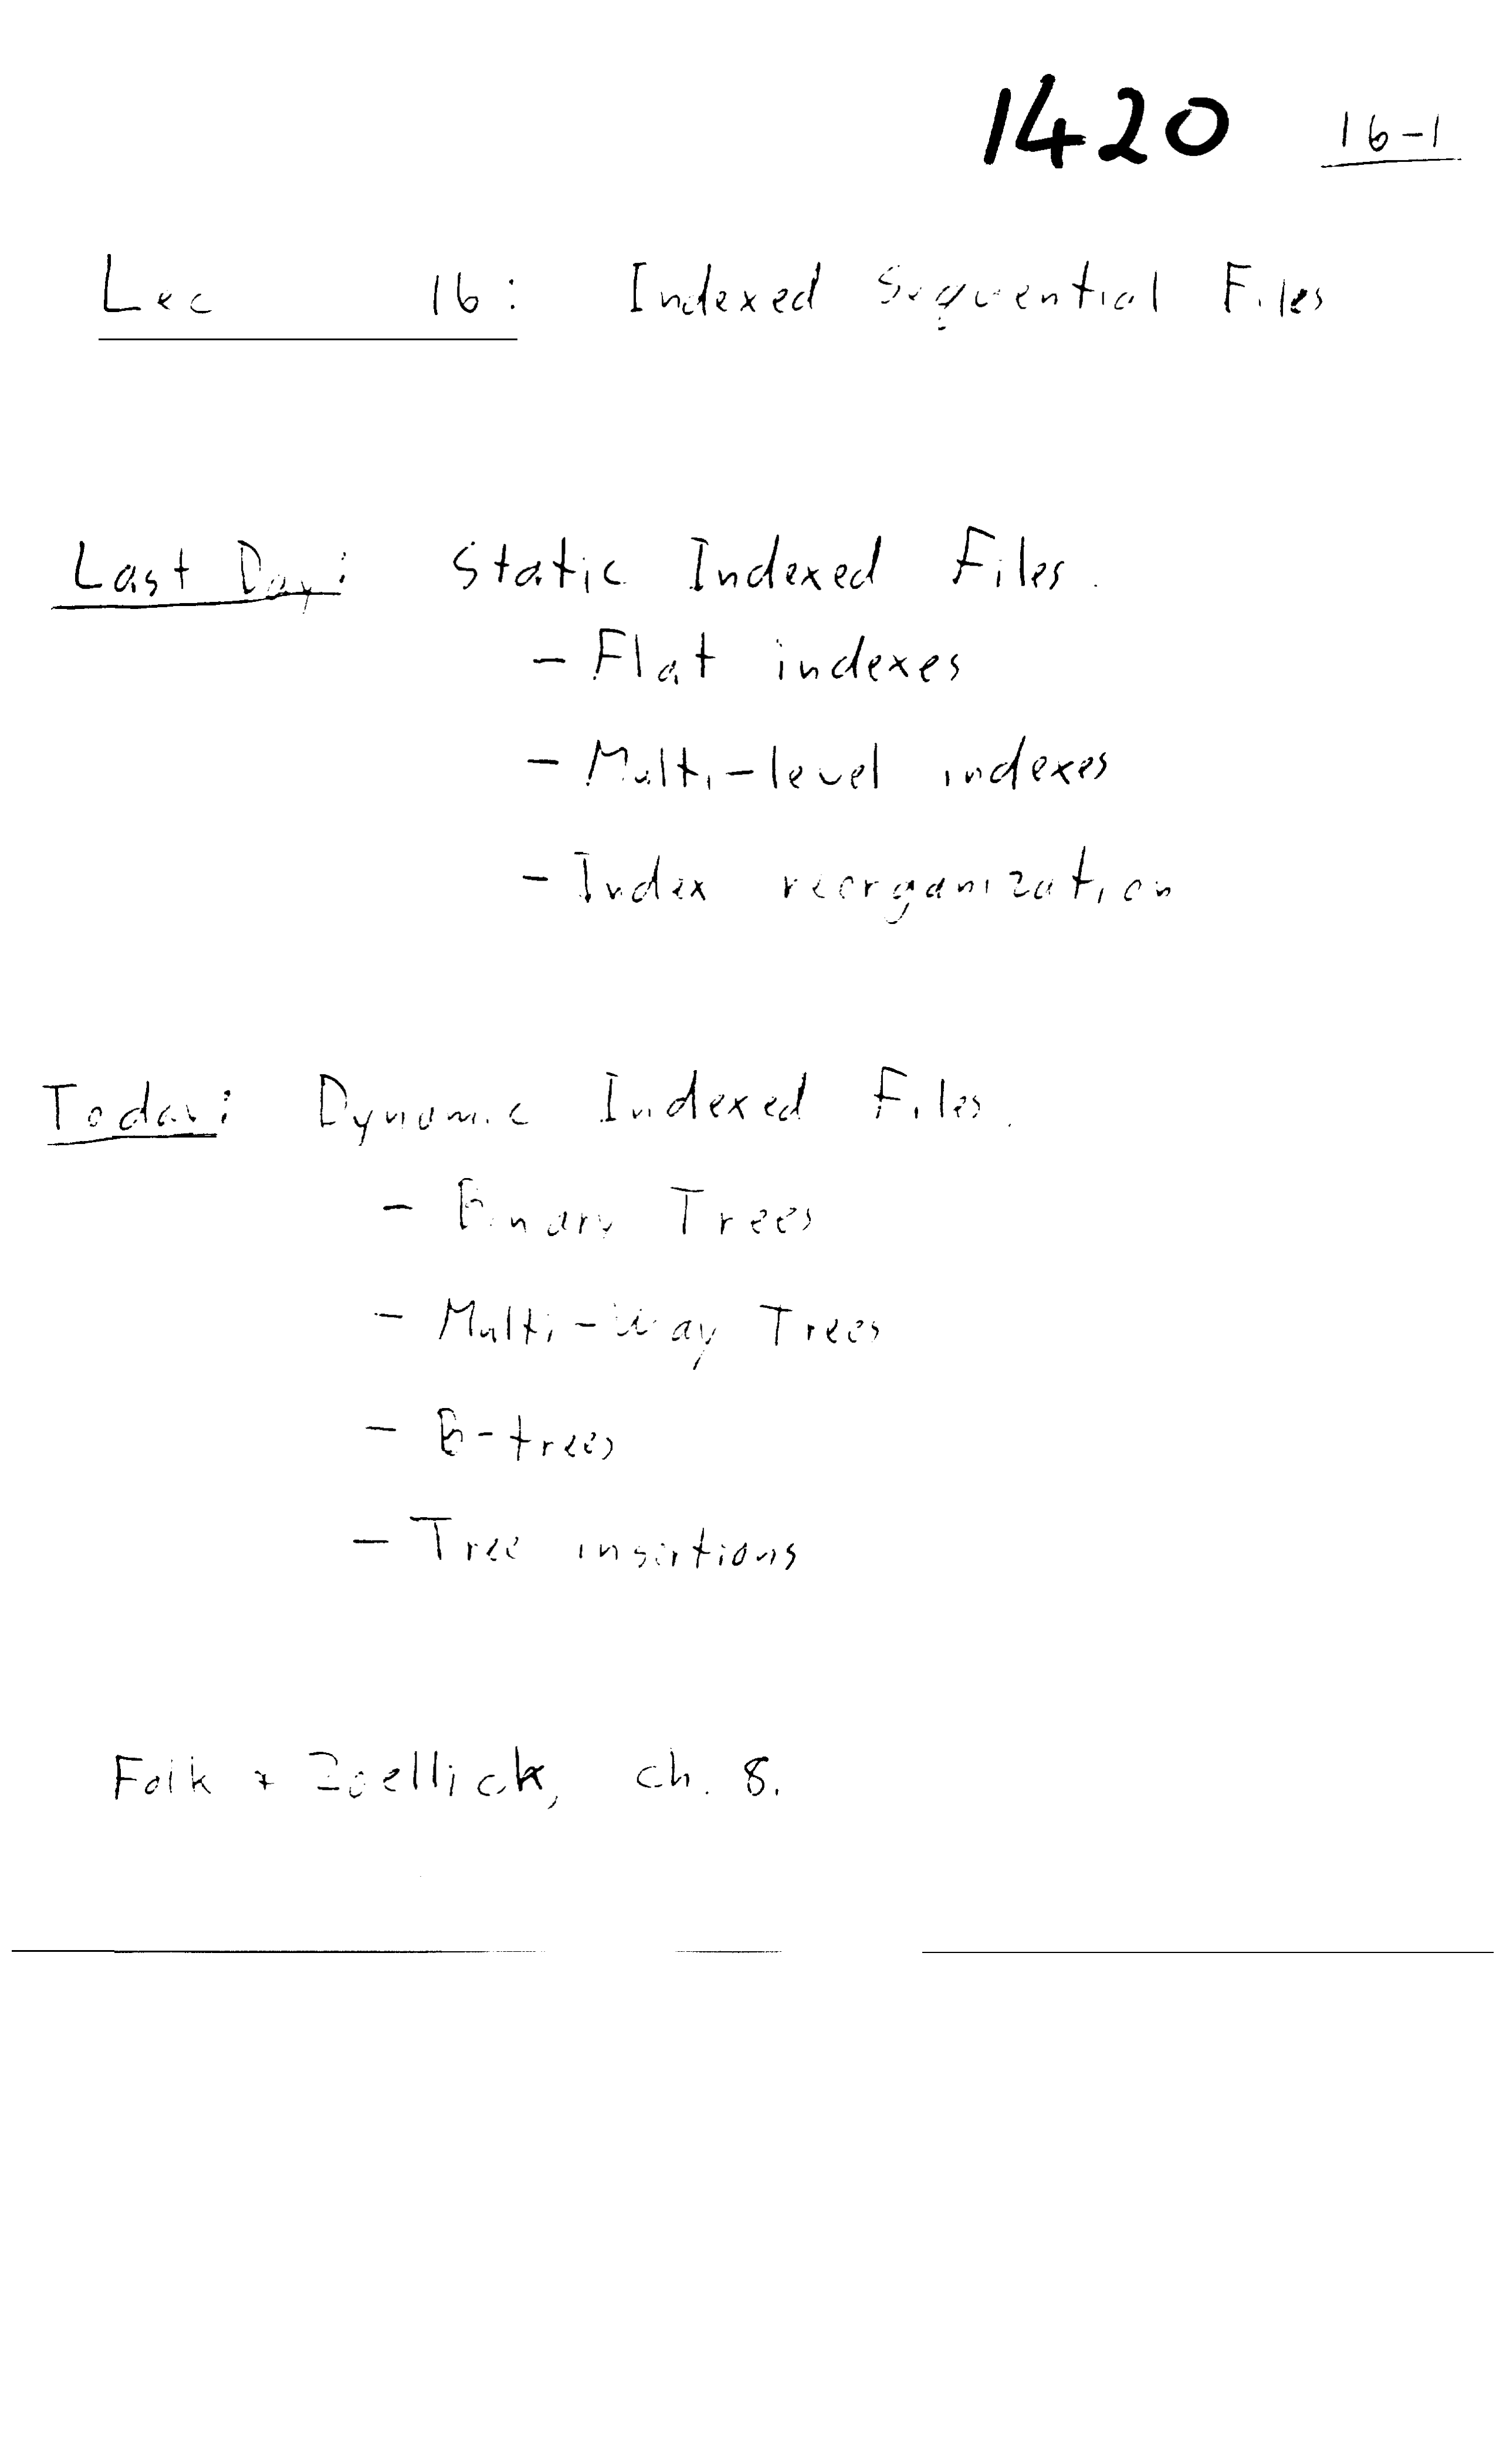 1420 16-1
Lec 16: Indexed Sequential Files
Last Day: Static Indexed Files.
- Flat indexes
- Multi-level indexes
- Index reorganization
Today: Dynamic Indexed Files.
- Binary Trees
- Multi-Way Trees
- B-trees
- Tree insertions
Folk + Zoellick, ch. 8.